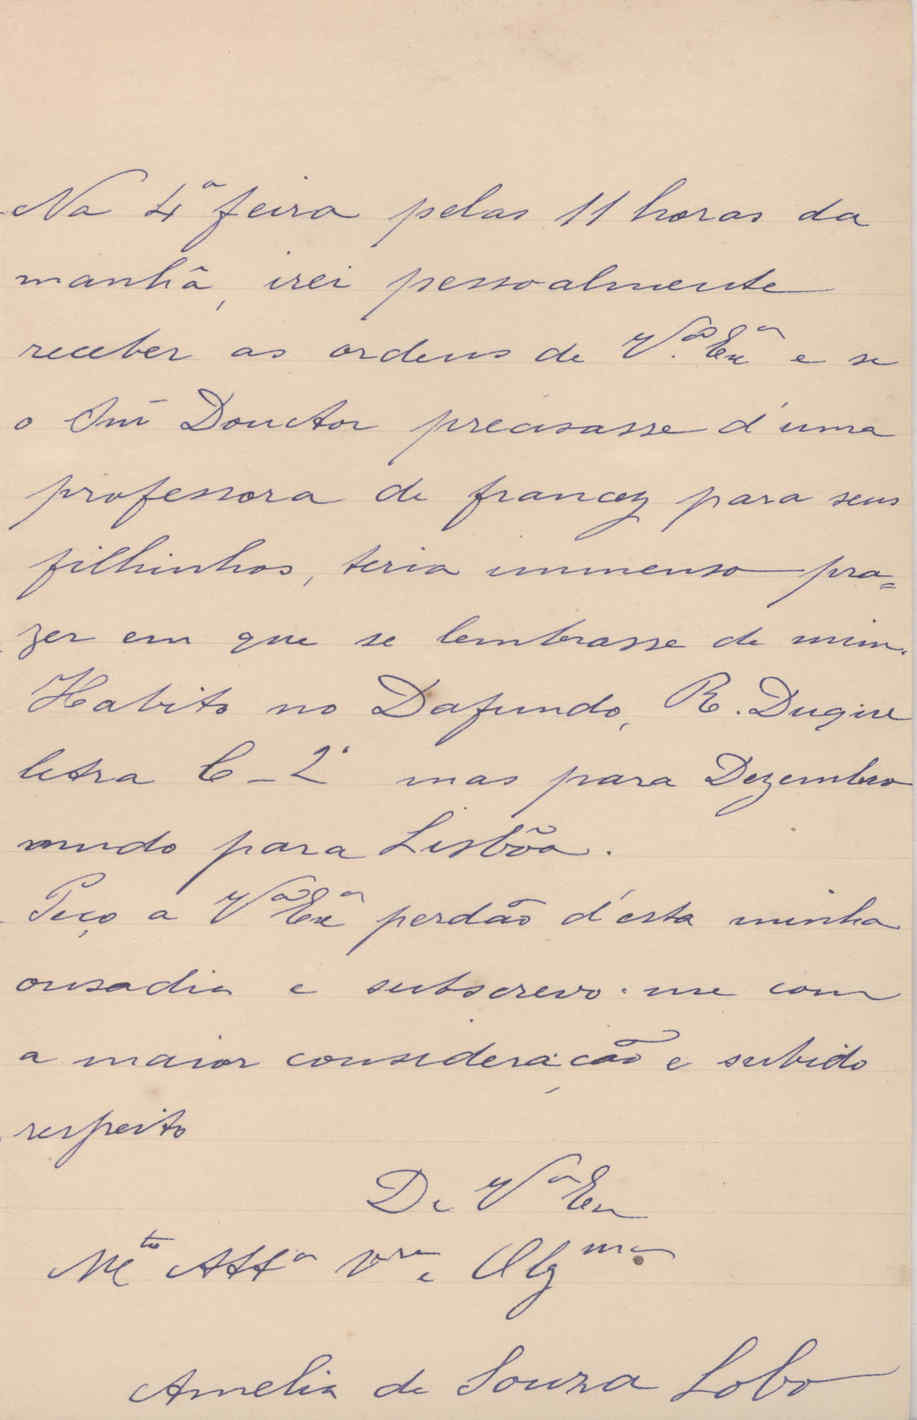 Na 4ª feira pelas 11 horas da
manhã, irei pessoalmente
receber as ordens de V.ª Exª e se
o Snr Douctor precisasse d'uma
professora de francez para seus
filhinhos, teria immenso pra=
zer em que se lembrasse de mim.
Habito no Dafundo, R. Duque
letra C – 2º mas para Dezembro
mudo para Lisbôa.
Peço a Vª Exª perdão d'esta minha
ousadia e subscrevo-me com
a maior consideração e subido
respeito
De Vª Ex
Mto Attª Vra e Obgma
Amelia de Souza Lobo